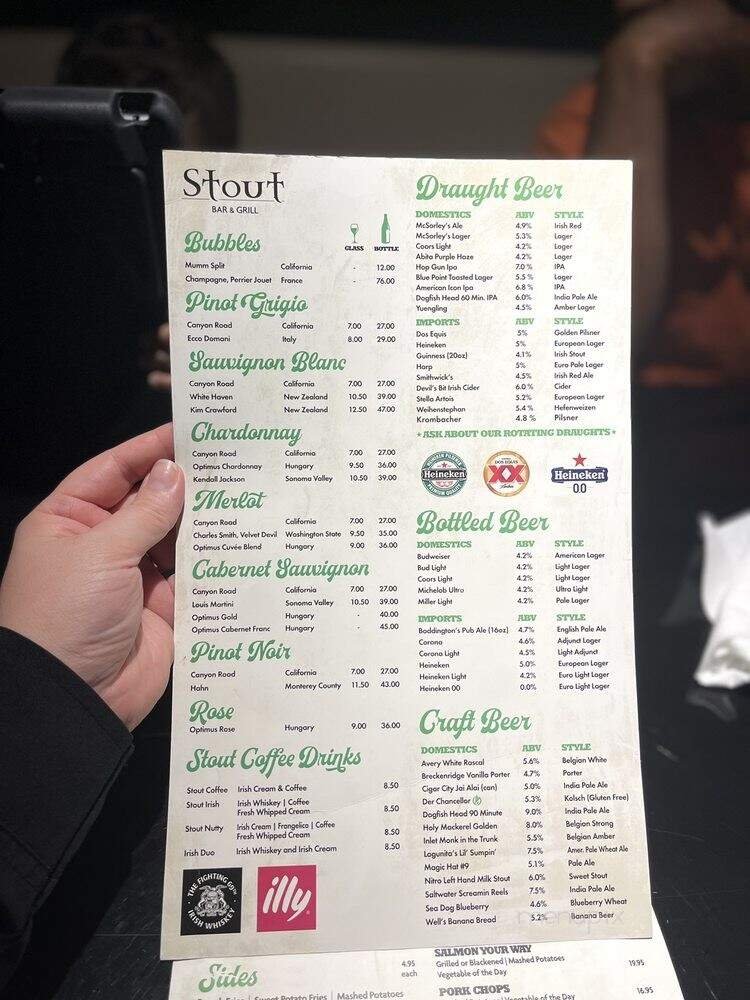 Stout
BAR & GRILL
Bubbles
GLASS BOTTLE
Mumm Split California - 12.00
Champagne, Perrier Jouet France - 76.00
Pinot Grigio
Canyon Road California 7.00 27.00
Ecco Domani Italy 8.00 29.00
Sauvignon Blanc
Canyon Road California 7.00 27.00
White Haven New Zealand 10.50 39.00
Kim Crawford New Zealand 12.50 47.00
Chardonnay
Canyon Road California 7.00 27.00
Optimus Chardonnay Hungary 9.50 36.00
Kendall Jackson Sonoma Valley 10.50 39.00
Merlot
Canyon Road California 7.00 27.00
Charles Smith, Velvet Devil Washington State 9.50 35.00
Optimus Cuvée Blend Hungary 9.00 36.00
Cabernet Sauvignon
Canyon Road California 7.00 27.00
Louis Martini Sonoma Valley 10.50 39.00
Optimus Gold Hungary - 40.00
Optimus Cabernet Franc Hungary - 45.00
Pinot Noir
Canyon Road California 7.00 27.00
Hahn Monterey County 11.50 43.00
Rose
Optimus Rose Hungary 9.00 36.00
Stout Coffee Drinks
Stout Coffee Irish Cream & Coffee 8.50
Stout Irish Irish Whiskey | Coffee
Fresh Whipped Cream 8.50
Stout Nutty Irish Cream | Frangelica | Coffee
Fresh Whipped Cream 8.50
Irish Duo Irish Whiskey and Irish Cream 8.50
THE FIGHTING 69TH
IRISH WHISKEY
illy
Draught Beer
DOMESTICS ABV STYLE
McSorley's Ale 4.9% Irish Red
McSorley's Lager 5.3% Lager
Coors Light 4.2% Lager
Abita Purple Haze 4.2% Lager
Hop Gun Ipa 7.0 % IPA
Blue Point Toasted Lager 5.5 % Lager
American Icon Ipa 6.8 % IPA
Dogfish Head 60 Min. IPA 6.0% India Pale Ale
Yuengling 4.5% Amber Lager
IMPORTS ABV STYLE
Dos Equis 5% Golden Pilsner
Heineken 5% European Lager
Guinness (20oz) 4.1% Irish Stout
Harp 5% Euro Pale Lager
Smithwick's 4.5% Irish Red Ale
Devil's Bit Irish Cider 6.0 % Cider
Stella Artois 5.2% European Lager
Weihenstephan 5.4 % Hefenweizen
Krombacher 4.8 % Pilsner
ASK ABOUT OUR ROTATING DRAUGHTS
Heineken
DOS EQUIS
XX
Heineken
0.0
Bottled Beer
DOMESTICS ABV STYLE
Budweiser 4.2% American Lager
Bud Light 4.2% Light Lager
Coors Light 4.2% Light Lager
Michelob Ultra 4.2% Ultra Light
Miller Light 4.2% Pale Lager
IMPORTS ABV STYLE
Boddington's Pub Ale (16oz) 4.7% English Pale Ale
Corona 4.6% Adjunct Lager
Corona Light 4.5% Light Adjunct
Heineken 5.0% European Lager
Heineken Light 4.2% Euro Light Lager
Heineken 00 0.0% Euro Light Lager
Craft Beer
DOMESTICS ABV STYLE
Avery White Rascal 5.6% Belgian White
Breckenridge Vanilla Porter 4.7% Porter
Cigar City Jai Alai (can) 5.0% India Pale Ale
Der Chancellor 5.3% Kolsch (Gluten Free)
Dogfish Head 90 Minute 9.0% India Pale Ale
Holy Mackerel Golden 8.0% Belgian Strong
Inlet Monk in the Trunk 5.5% Belgian Amber
Lagunita's Lil' Sumpin' 7.5% Amer. Pale Wheat Ale
Magic Hat #9 5.1% Pale Ale
Nitro Left Hand Milk Stout 6.0% Sweet Stout
Saltwater Screamin Reels 7.5% India Pale Ale
Sea Dog Blueberry 4.6% Blueberry Wheat
Well's Banana Bread 5.2% Banana Beer
Sides
4.95
each
Sweet Potato Fries | Mashed Potatoes
SALMON YOUR WAY
Grilled or Blackened | Mashed Potatoes 19.95
Vegetable of the Day
PORK CHOPS 16.95
Vegetable of the Day